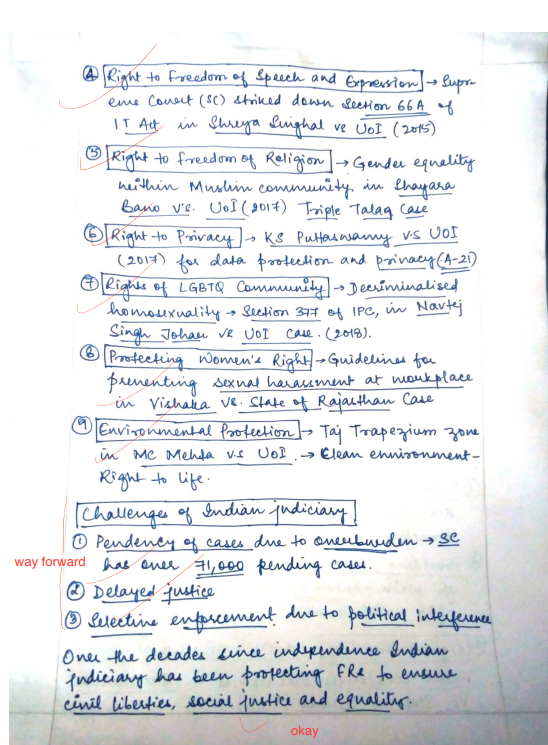 ④ Right to Freedom of Speech and Expression → Supr-
eme Court (SC) striked down Section 66A of
IT Act in Shreya Singhal vs UoI (2015)
⑤ Right to Freedom of Religion → Gender equality
within Muslim community in Shayara
Bano v's. UoI (2017) Triple Talaq Case
⑥ Right to Privacy → KS Puttaswamy v.s UOI
(2017) for data protection and privacy (A-21)
⑦ Rights of LGBTQ Community → Decriminalised
homosexuality → Section 377 of IPC, in Navtej
Singh Johar vs UoI Case. (2018).
⑧ Protecting Women's Right → Guidelines for
preventing sexual harassment at workplace
in Vishaka vs. State of Rajasthan Case
⑨ Environmental Protection → Taj Trapezium zone
in MC Mehta v.s UoI. → Clean environment -
Right to life.
Challenges of Indian judiciary
① Pendency of cases due to overburden → SC
has over 71,000 pending cases.
way forward
② Delayed justice
③ Selective enforcement due to political interference
Over the decades since independence Indian
judiciary has been protecting FRs to ensure
civil liberties, social justice and equality.
okay